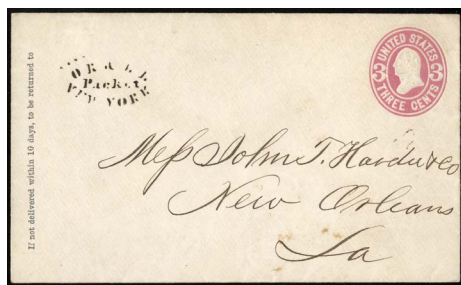 If not delivered within 10 days, to be returned to
Packet
NEW YORK
UNITED STATES
3 3
THREE CENTS
John T. Hardie & Co
New Orleans
La